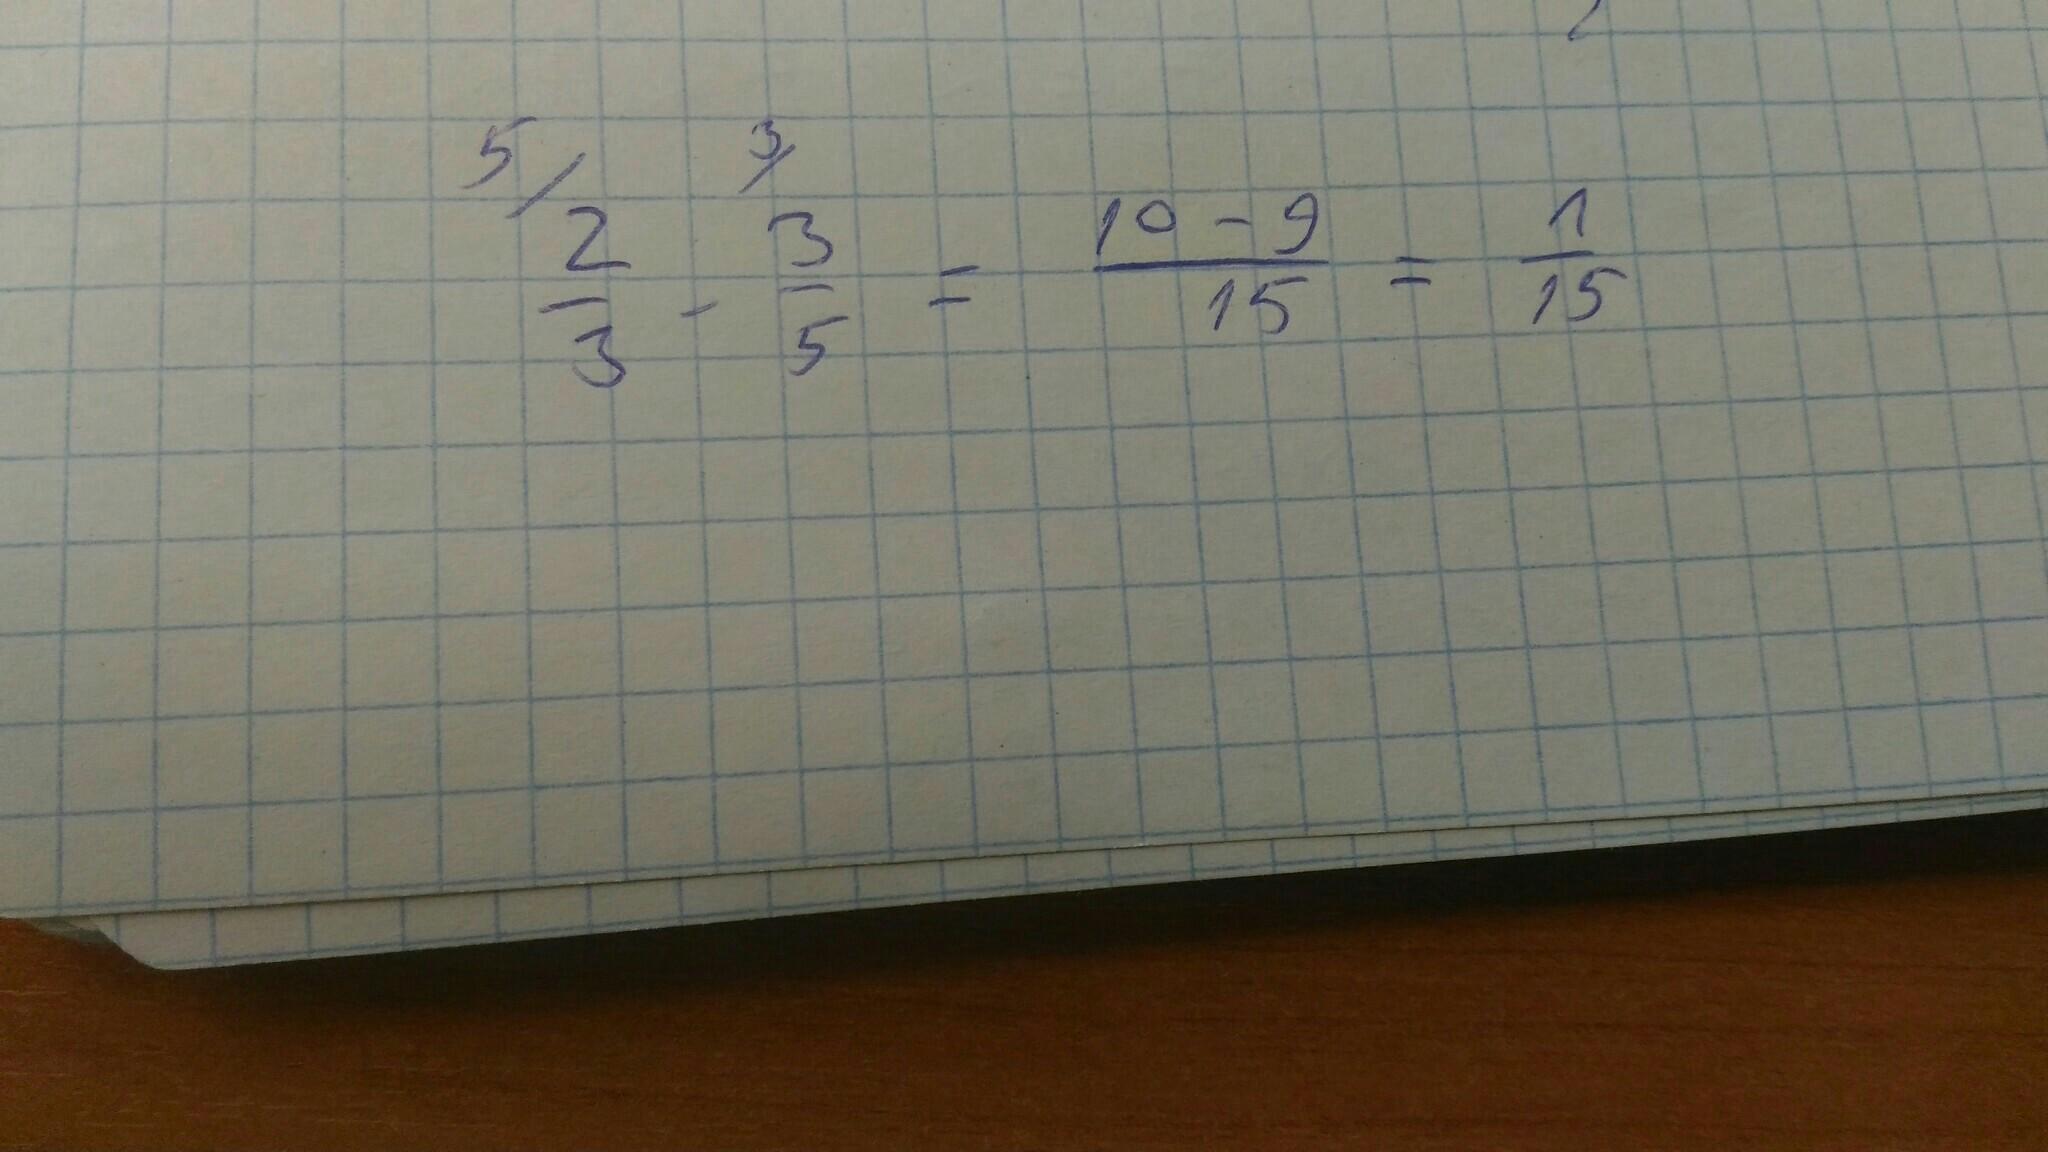 5/ 2/3 - 3/ 3/5 = 10-9/15 = 1/15